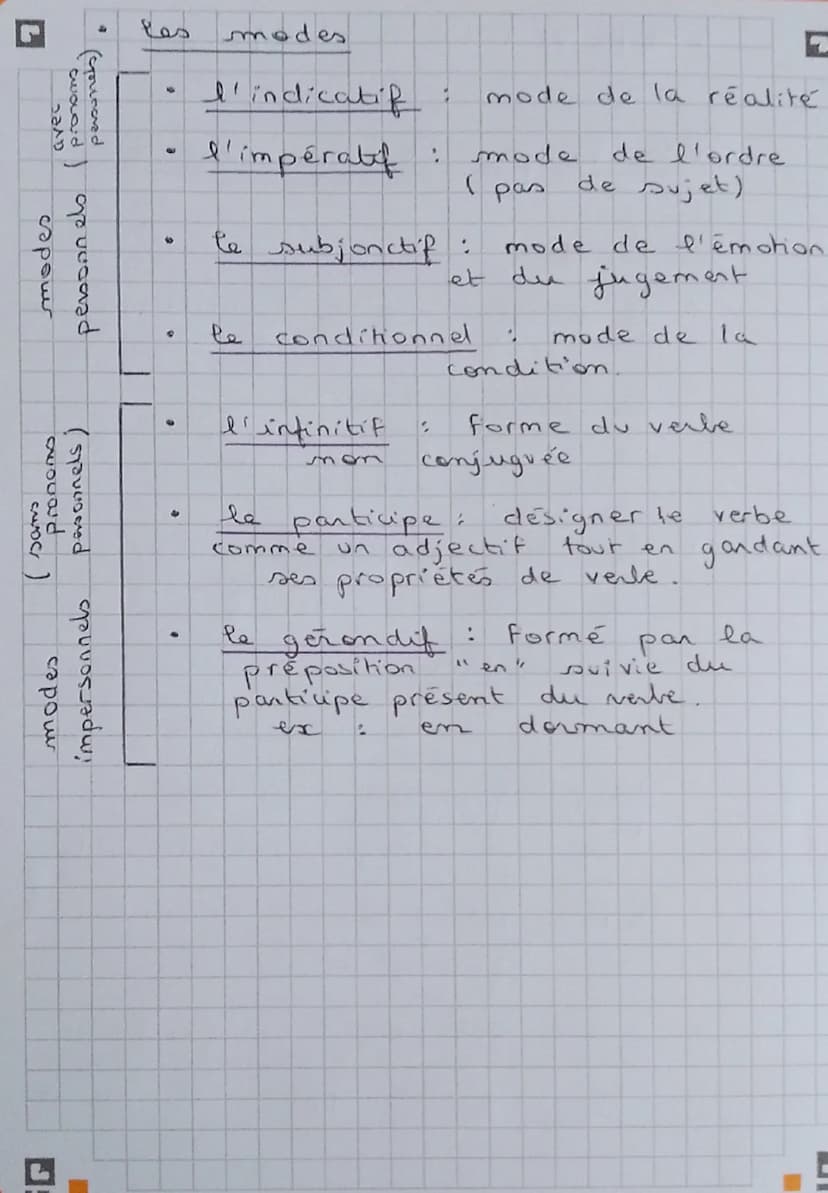 • Les modes
modes
personnels (avec
pronoms
personnels)
• l'indicatif : mode de la réalité
• l'impératif : mode de l'ordre
(pas de sujet)
• le subjonctif : mode de l'émotion
et du jugement
• le conditionnel : mode de la
condition.
modes (sans
pronoms
impersonnels personnels)
• l'infinitif : forme du verbe
non conjuguée
• le participe : désigner le verbe
comme un adjectif tout en gardant
ses propriétés de verbe.
• le gérondif : formé par la
préposition "en" suivie du
participe présent du verbe.
ex : en dormant